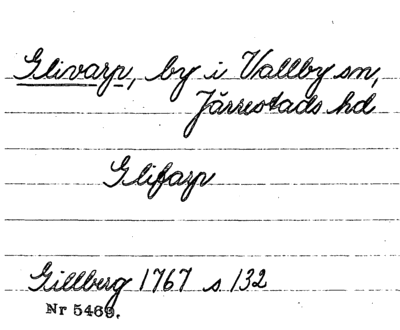 Glivarp, by i Vallby sn,
Järrestads hd
Glifarp
Gillberg 1767 s 132
Nr 5469.